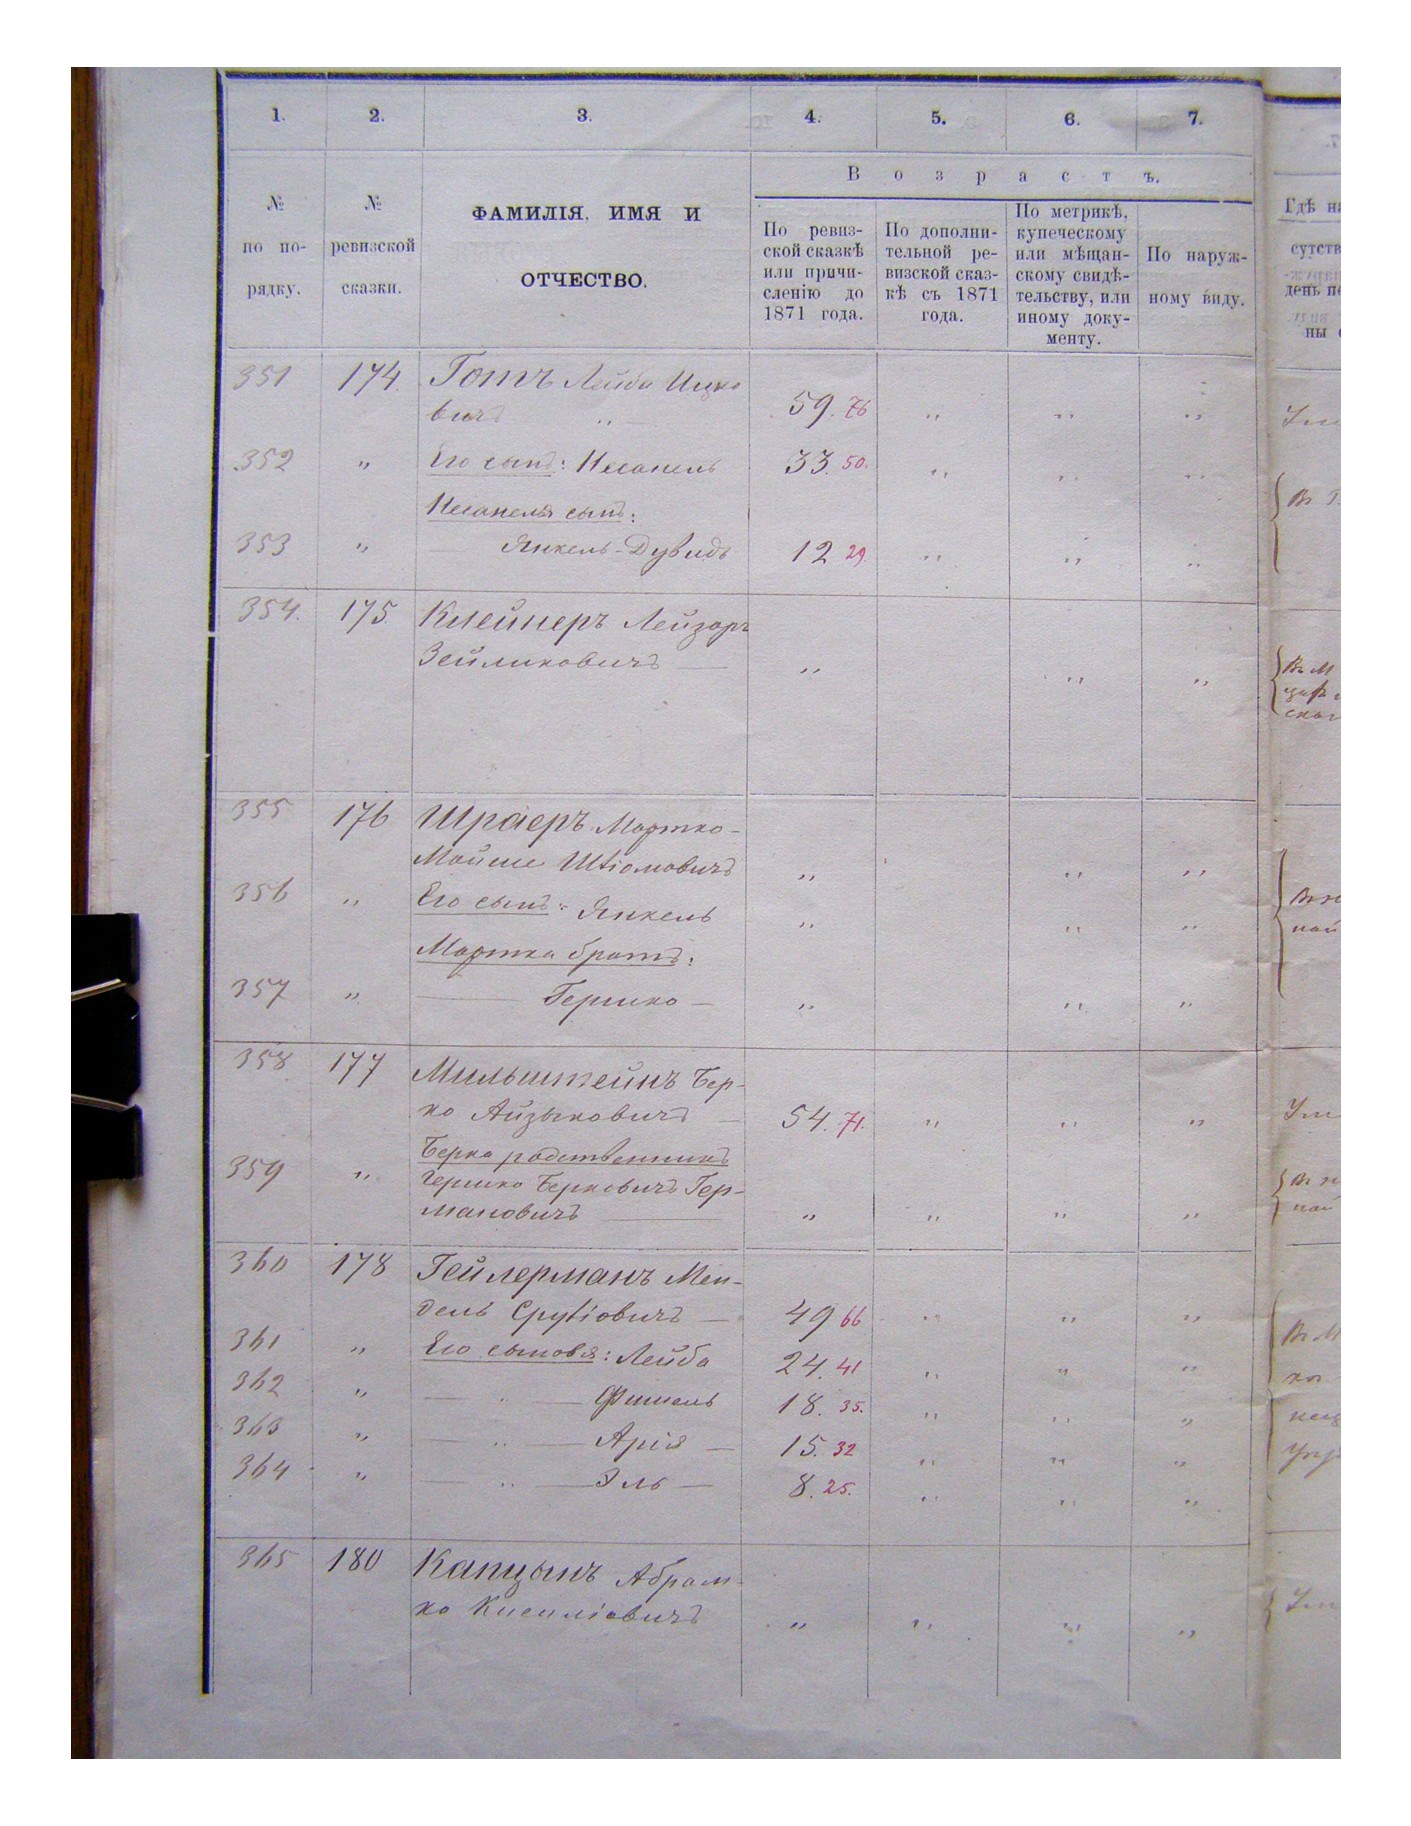 1. 2. 3. 4. 5. 6. 7.
Возрастъ.
№ по порядку.
№ ревизской сказки.
ФАМИЛІЯ, ИМЯ И
ОТЧЕСТВО.
По ревиз-
ской сказкѣ
или причи-
сленію до
1871 года.
По дополни-
тельной ре-
визской сказ-
кѣ съ 1871
года.
По метрикѣ,
купеческому
или мѣщан-
скому свидѣ-
тельству, или
иному доку-
менту.
По наруж-
ному виду.
Гдѣ на
сутств
день пе
ны
351 174. Готъ Лейба Ицко
вичъ „ 59. 76 „ „ „
352 „ Его сынъ: Несанель 33. 50. „ „ „
Несанеля сынъ:
353 „ Янкель-Дувидъ 12 29. „ „ „
354. 175. Клейнеръ Лейзоръ
Зейликовичъ „ „ „
Въ М
355 176 Шраеръ Мортко-
Мойше Шліомовичъ „ „ „
356 „ Его сынъ: Янкель „ „ „
Мортка братъ:
357 „ Гершко „ „ „
358 177 Мильштейнъ Бер-
ко Айзыковичъ 54. 71. „ „ „
Берка родственникъ
359 „ Гершко Берковичъ Гер-
мановичъ „ „ „ „
360 178 Гейлерманъ Мен-
дель Срулiовичъ 49 66 „ „ „
361 „ Его сыновя: Лейба 24. 41 „ „ „
362 „ „ Фишель 18. 35. „ „ „
363 „ „ Арія 15. 32 „ „ „
364 „ „ Эль 8. 25. „ „ „
365 180 Капцынъ Абрам-
ко Кисиліовичъ „ „ „ „